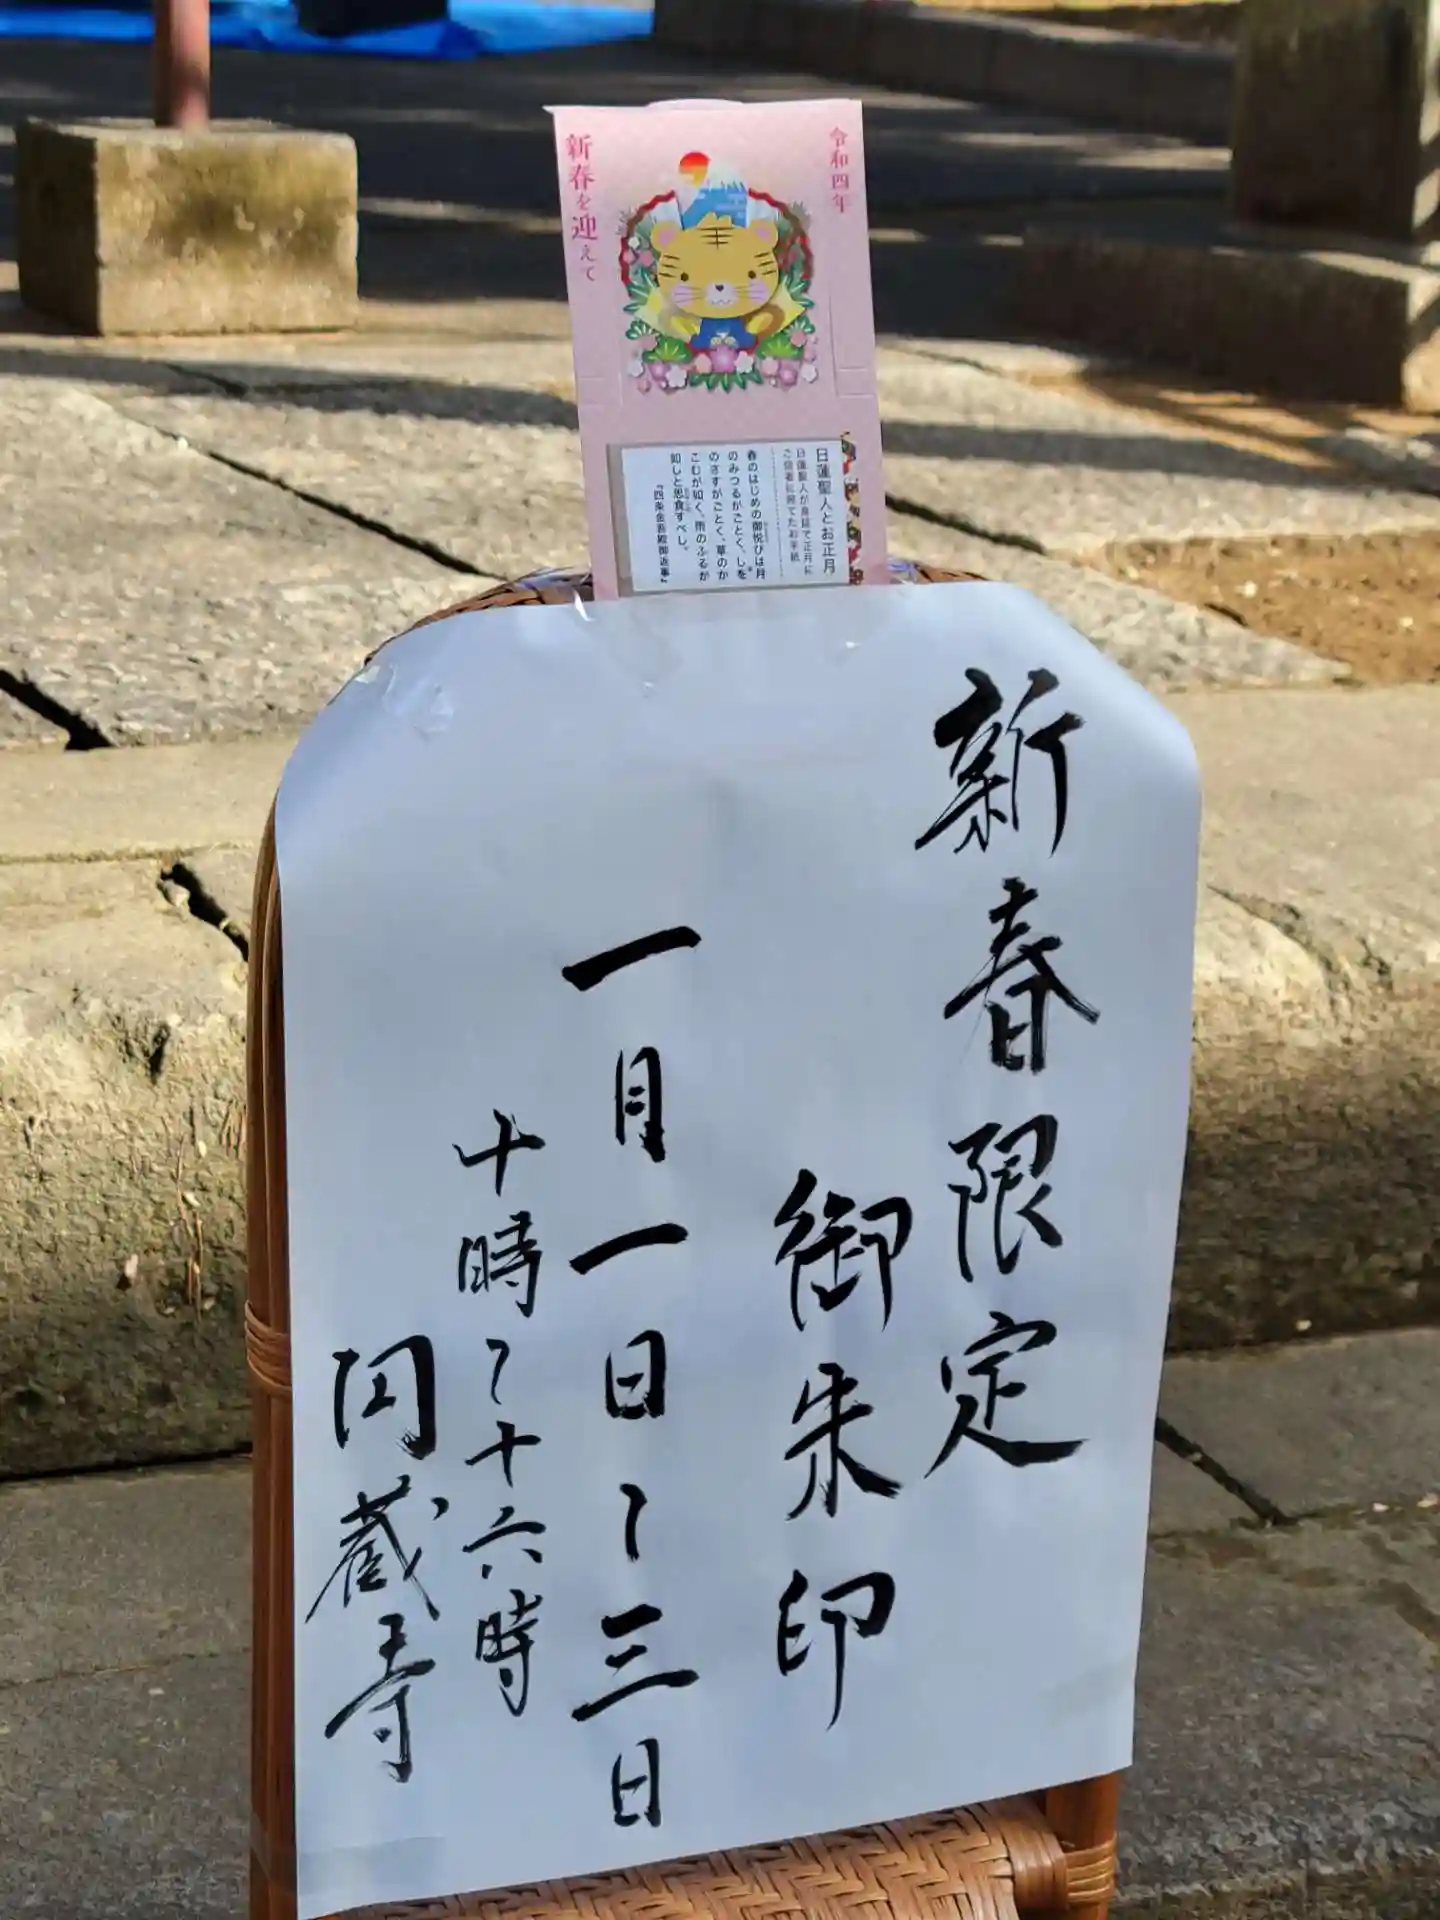 令和四年
新春を迎えて
日蓮聖人とお正月
日蓮聖人が身延で正月に
ご信者に宛てたお手紙
春のはじめの御悦びは月
のみつるがごとく、しを
のさすがごとく、草のか
こむが如く、雨のふるが
如しと思食すべし。
『四条金吾殿御返事』
新春限定
御朱印
一月一日〜三日
十時〜十六時
円蔵寺